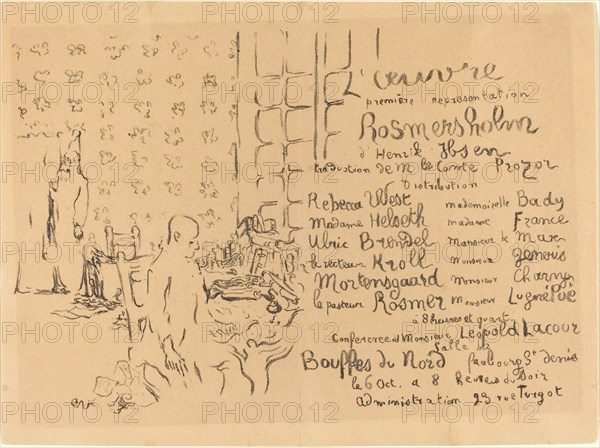 L'œuvre
première representation
Rosmersholm
d'Henrik Ibsen
traduction de M. le Comte Prozor
Distribution
Rebecca West mademoiselle Bady
Madame Helseth madame France
Ulric Brendel Monsieur de Max
le recteur Kroll Monsieur
Mortensgaard Monsieur Charny
le pasteur Rosmer Monsieur Lugné Poë
à 8 heures et quart
Conference de Monsieur Léopold Lacour
Salle des
Bouffes du Nord faubourg St denis
le 6 Oct. a 8 Heures du Soir
administration 23 rue Turgot
PHOTO12